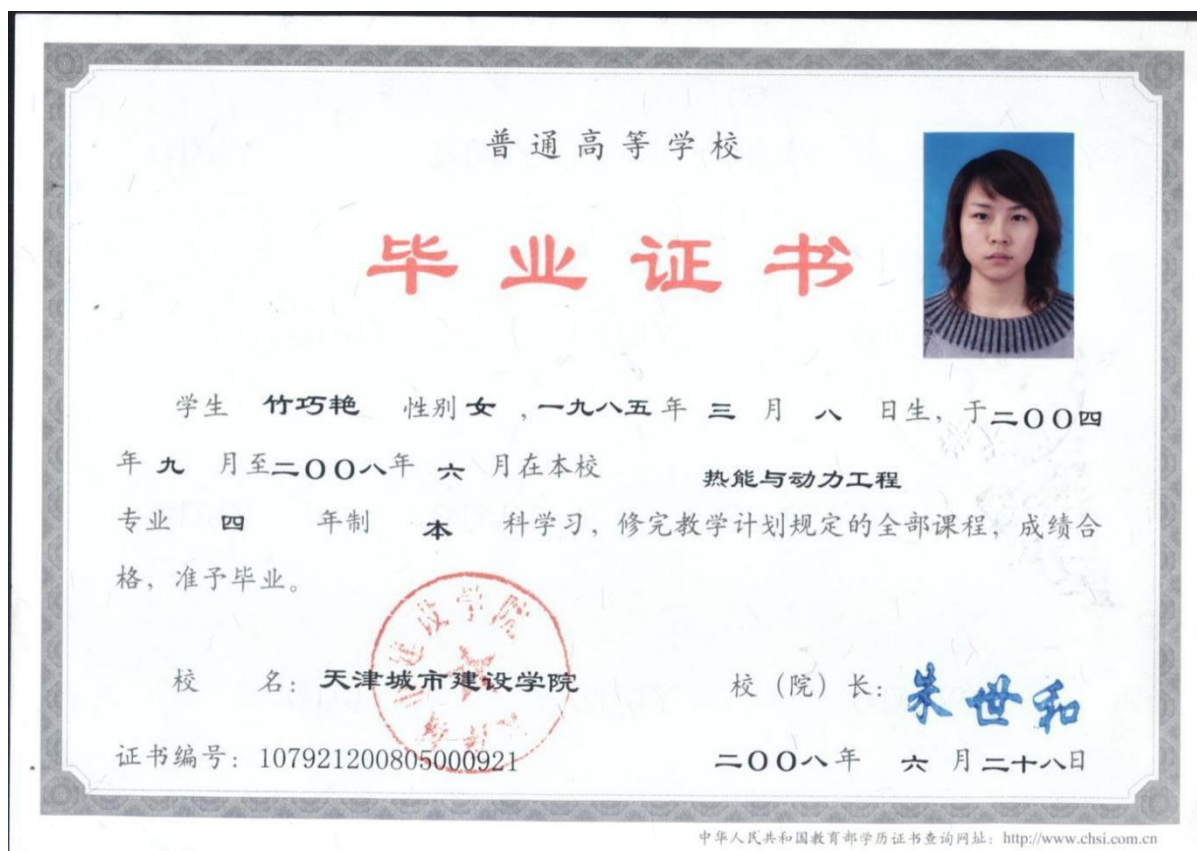 普通高等学校
毕业证书
学生 竹巧艳 性别 女 ,一九八五年 三 月 八 日生，于二〇〇四
年 九 月至二〇〇八年 六 月在本校 热能与动力工程
专业 四 年制 本 科学习，修完教学计划规定的全部课程，成绩合
格，准予毕业。
建设学院
校 名：天津城市建设学院 校（院）长：朱世和
证书编号：107921200805000921 二〇〇八年 六 月二十八日
中华人民共和国教育部学历证书查询网址：http://www.chsi.com.cn